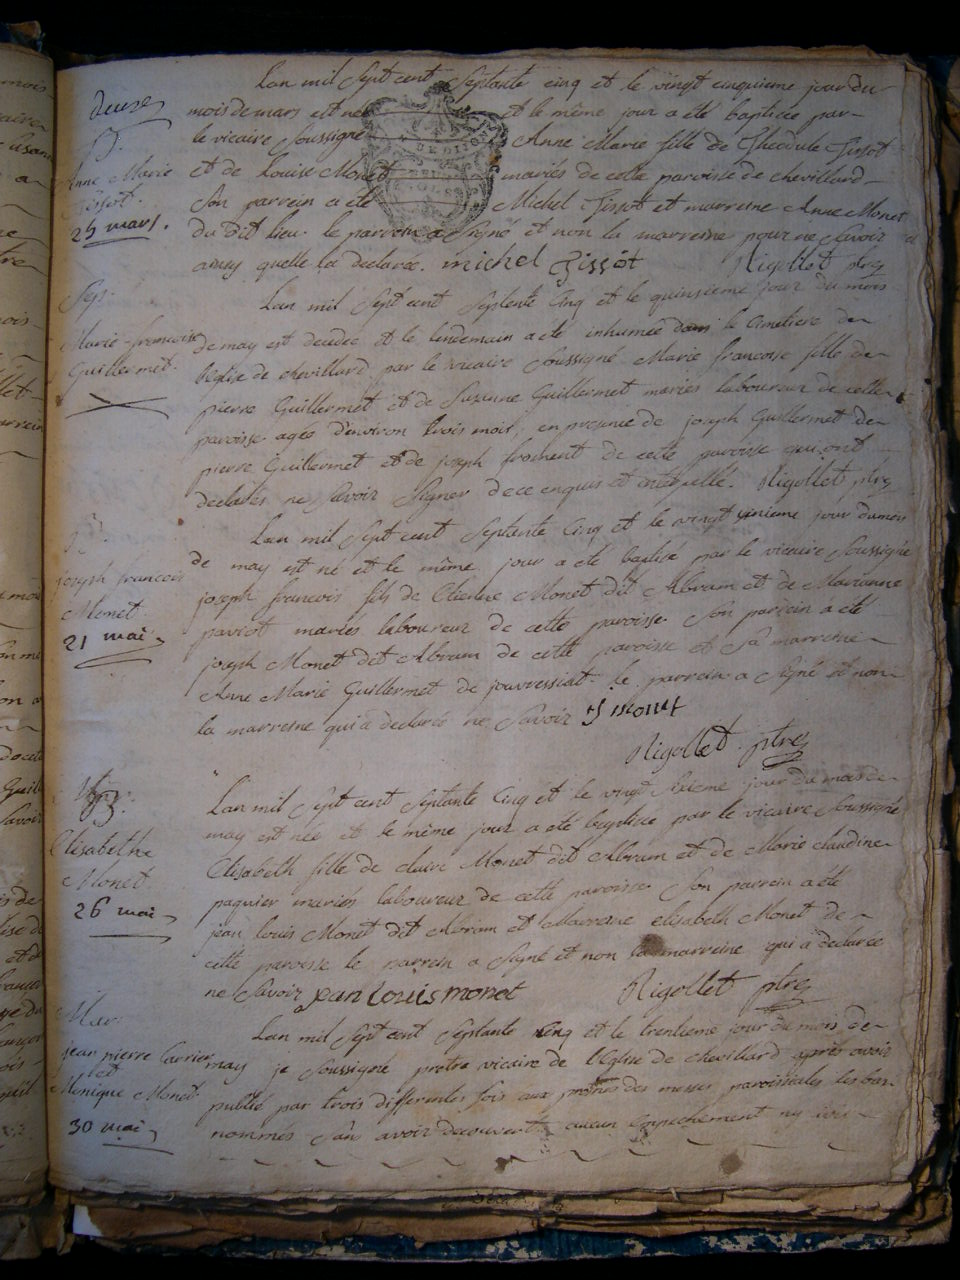 deuze
B.
Anne Marie
Tissot.
25 mars.
Lan mil Sept cent Septente cinq et le vingt cinquieme jour du
mois de mars est née et le même jour a été baptisée par
le vicaire Soussigné Anne Marie fille de Theodule Tissot
et de Louise Monet mariés de cette paroisse de chevillard
Son parrein a été Michel Tissot et marreine Anne Monet
du dit lieu. le parrein a Signé et non la marreine pour ne Savoir
ainsy quelle la declarée. michel Tissot Rigollet ptre
Sep.
Marie françoise
Guillermet.
Lan mil Sept cent Septente Cinq et le quinsieme jour du mois
de may est decedée et le lendemain a été inhumée dans le Cimetiere de
l'Eglise de chevillard par le vicaire Soussigné Marie francoise fille de
pierre Guillermet et de Suzanne Guillermet mariés laboureur de cette
paroisse agée d'environ trois mois, en presence de joseph Guillermet de
pierre Guillermet et de joseph froment de cette paroisse qui ont
declarés ne Savoir Signer de ce enquis et interpellé. Rigollet ptre
B
joseph francois
Monet
21 mai
Lan mil Sept cent Septente Cinq et le vingt unieme jour du mois
de may est né et le même jour a été baptisé par le vicaire Soussigné
joseph francois fils de Etienne Monet dit Abram et de Marianne
paviot mariés laboureur de cette paroisse. Son parrein a été
joseph Monet dit Abram de cette paroisse et Sa marreine
Anne Marie Guillermet de jouvressiat. le parrein a Signé et non
la marreine qui a declarée ne Savoir J monet
Rigollet ptre
Elisabethe
Monet.
26 mai
Lan mil Sept cent Septante Cinq et le vingt Sixieme jour du mois de
may est née et le même jour a été baptisée par le vicaire Soussigné
Elisabeth fille de claire Monet dit Abram et de Marie claudine
paquier mariés laboureur de cette paroisse Son parrein a été
jean louis Monet dit Abram et Marreine elisabeth Monet de
cette paroisse le parrein a Signé et non la marreine qui a declarée
ne Savoir jean Louis monet Rigollet ptre
Mar.
jean pierre Carrier
et
Monique Monet
30 mai
Lan mil Sept cent Septante Cinq et le trentieme jour du mois de
may je Soussigné pretre vicaire de l'Eglise de chevillard après avoir
publié par trois differentes fois aux prônes des messes paroissiales les bas
nommés Sans avoir decouvert aucun empechement ny